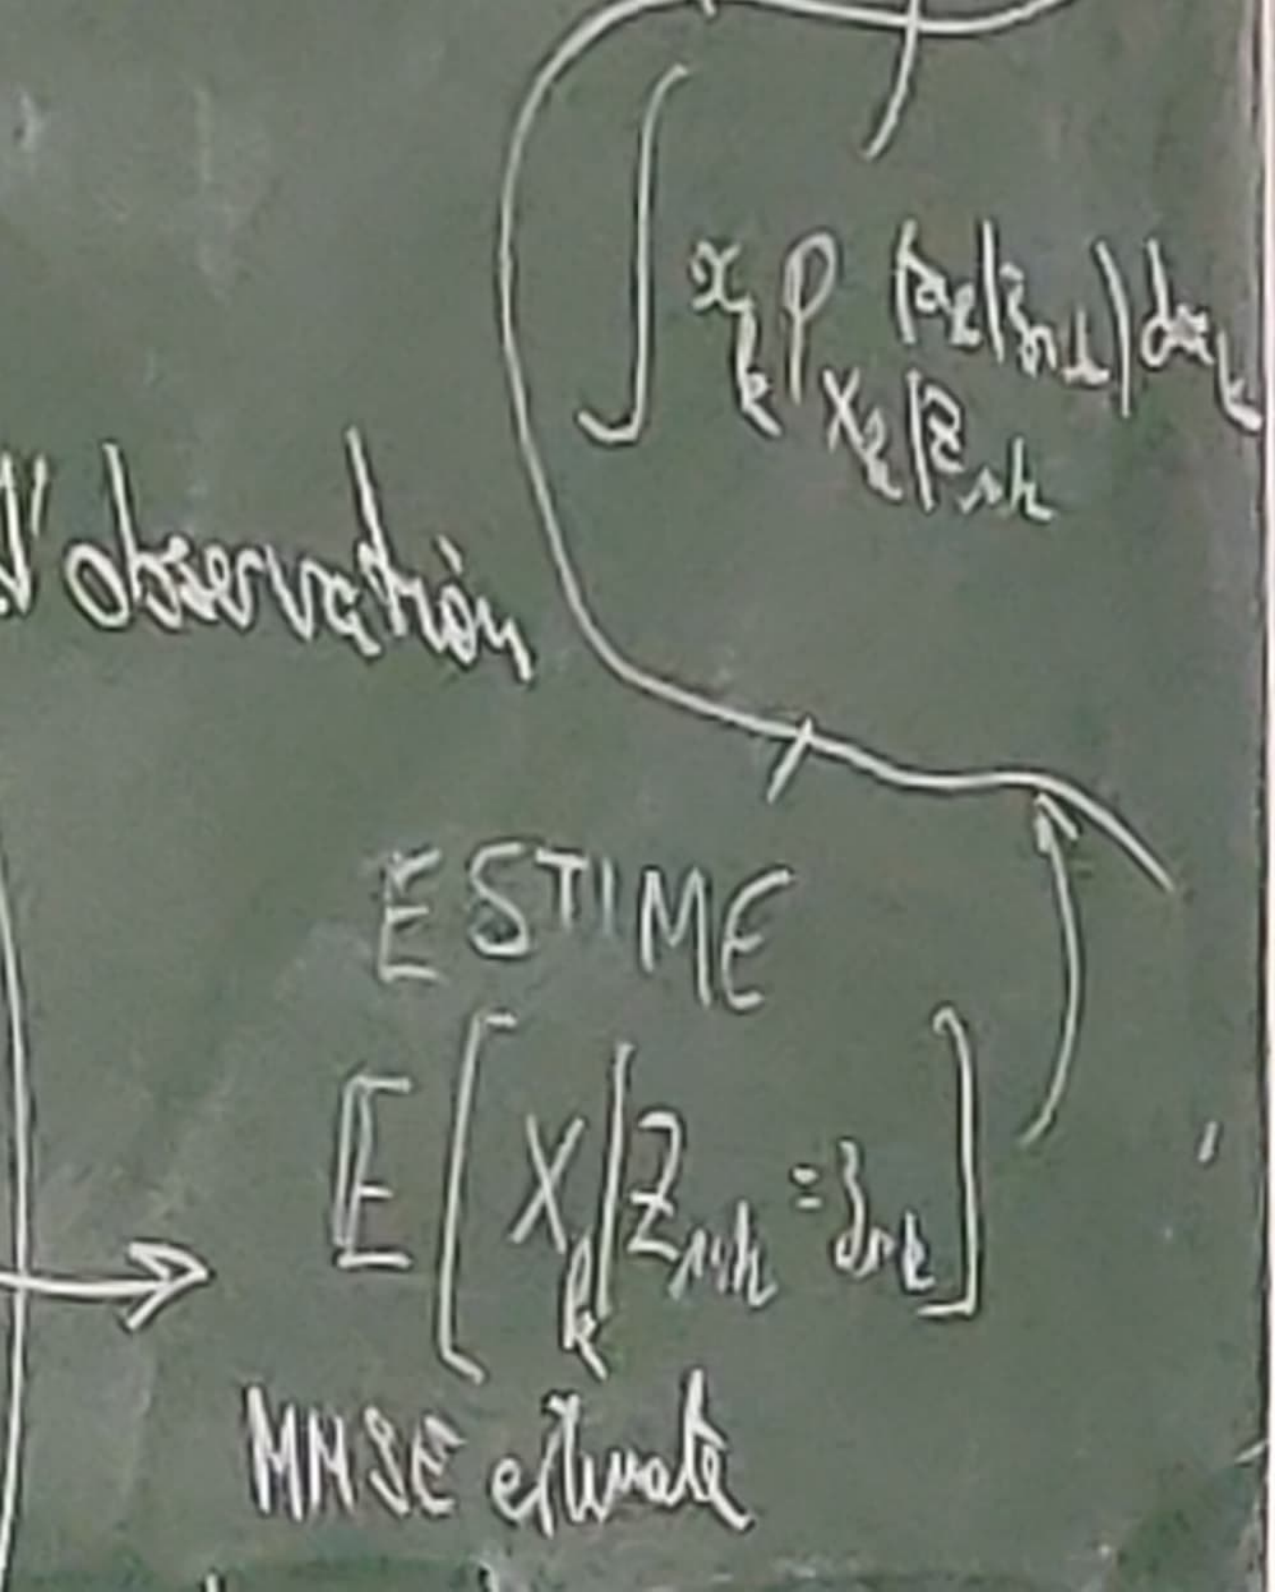 ∫ x_k p_{X_k|Z_{1:k}} (x_k|z_{1:k}) dx_k
d'observation
ESTIME
E[X_k|Z_{1:k} = z_{1:k}]
MMSE estimate